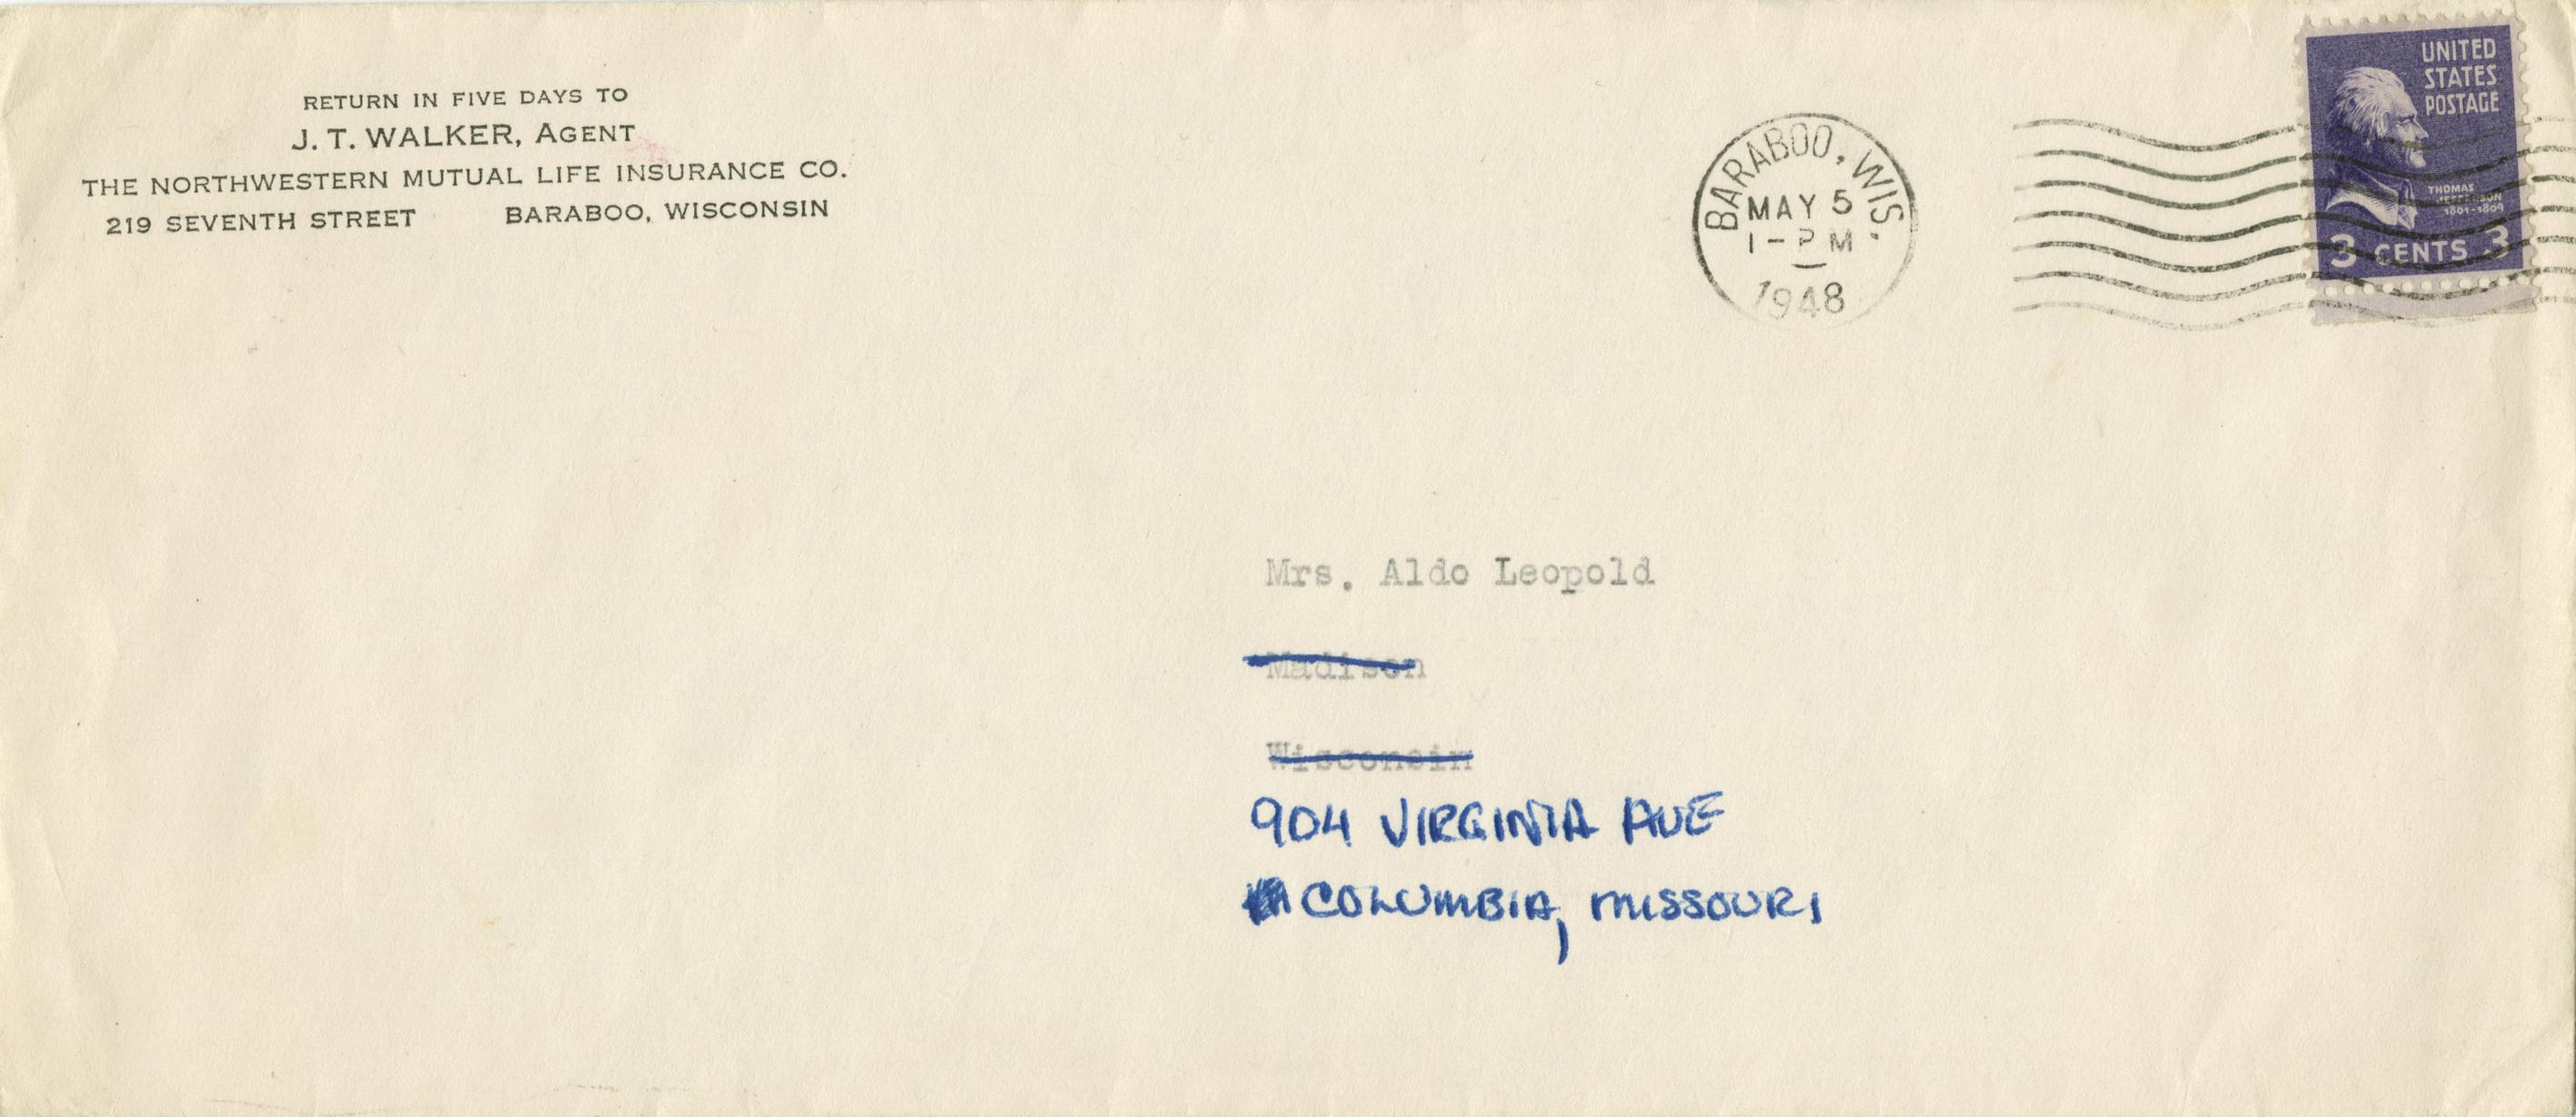 RETURN IN FIVE DAYS TO
J. T. WALKER, AGENT
THE NORTHWESTERN MUTUAL LIFE INSURANCE CO.
219 SEVENTH STREET BARABOO, WISCONSIN
BARABOO, WIS.
MAY 5
1-PM
1948
UNITED
STATES
POSTAGE
THOMAS
JEFFERSON
1801-1809
3 CENTS 3
Mrs. Aldo Leopold
Madison
Wisconsin
904 VIRGINIA AVE
COLUMBIA, MISSOURI